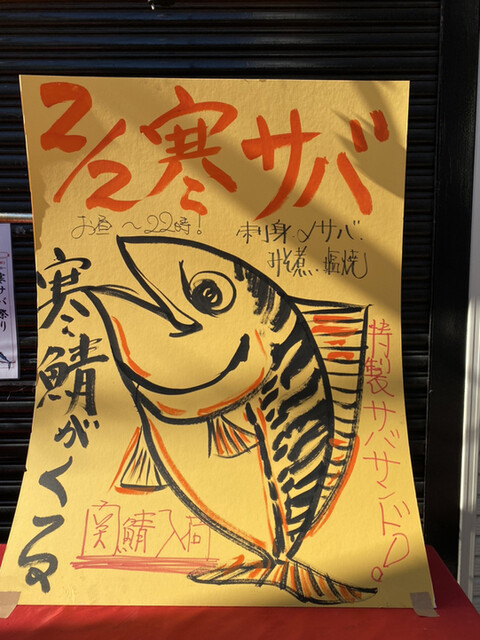 2/2 寒サバ
お昼〜22時!
刺身〆サバ.
みそ煮.塩焼
寒鯖がくる
特製サバサンド♪!
関鯖入荷